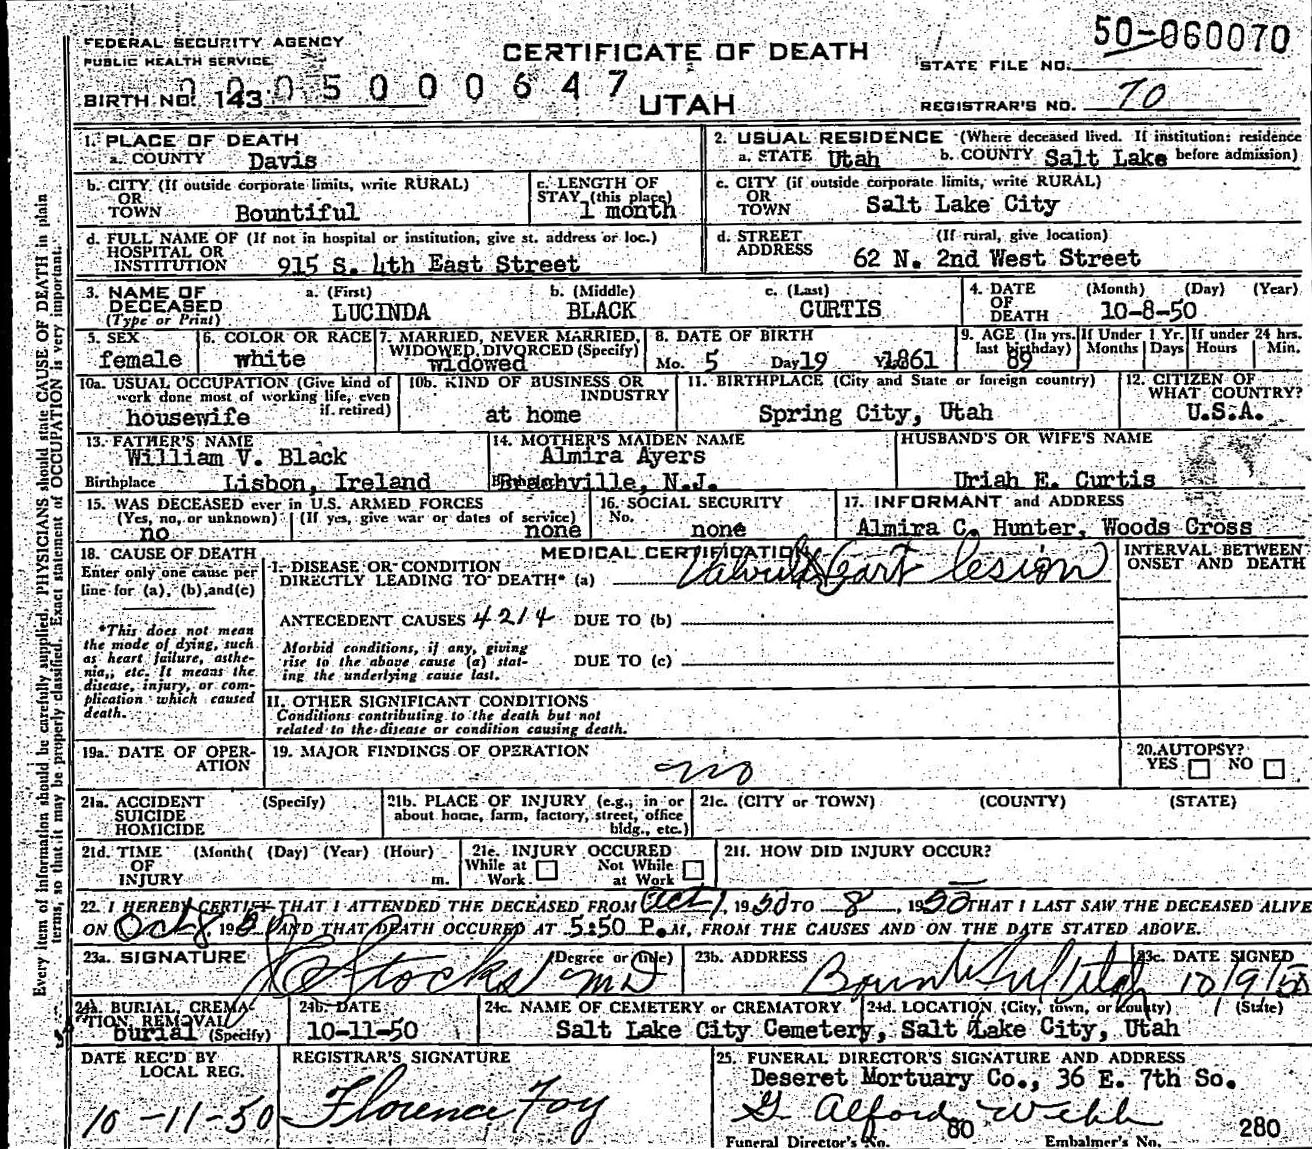 FEDERAL SECURITY AGENCY
PUBLIC HEALTH SERVICE
BIRTH NO. 143
0 0 0 5 0 0 0 6 4 7
CERTIFICATE OF DEATH
UTAH
50-060070
STATE FILE NO.
REGISTRAR'S NO. 70
Every item of information should be carefully supplied. PHYSICIANS should state CAUSE OF DEATH in plain
terms, so that it may be properly classified. Exact statement of OCCUPATION is very important.
1. PLACE OF DEATH
a. COUNTY Davis
2. USUAL RESIDENCE (Where deceased lived. If institution: residence
a. STATE Utah b. COUNTY Salt Lake before admission)
b. CITY (If outside corporate limits, write RURAL)
OR
TOWN Bountiful
c. LENGTH OF
STAY (this place)
1 month
c. CITY (if outside corporate limits, write RURAL)
OR
TOWN Salt Lake City
d. FULL NAME OF (If not in hospital or institution, give st. address or loc.)
HOSPITAL OR
INSTITUTION 915 S. 4th East Street
d. STREET (If rural, give location)
ADDRESS 62 N. 2nd West Street
3. NAME OF a. (First) b. (Middle) c. (Last)
DECEASED LUCINDA BLACK CURTIS
(Type or Print)
4. DATE (Month) (Day) (Year)
OF
DEATH 10-8-50
5. SEX
female
6. COLOR OR RACE
white
7. MARRIED, NEVER MARRIED,
WIDOWED, DIVORCED (Specify)
widowed
8. DATE OF BIRTH
Mo. 5 Day 19 Y 1861
9. AGE (In yrs. last birthday)
89
If Under 1 Yr.
Months Days
If under 24 hrs.
Hours Min.
10a. USUAL OCCUPATION (Give kind of
work done most of working life, even
if retired)
housewife
10b. KIND OF BUSINESS OR
INDUSTRY
at home
11. BIRTHPLACE (City and State or foreign country)
Spring City, Utah
12. CITIZEN OF
WHAT COUNTRY?
U.S.A.
13. FATHER'S NAME
William V. Black
Birthplace Lisbon, Ireland
14. MOTHER'S MAIDEN NAME
Almira Ayers
N.J.
HUSBAND'S OR WIFE'S NAME
Uriah E. Curtis
15. WAS DECEASED ever in U.S. ARMED FORCES
(Yes, no, or unknown) (If yes, give war or dates of service)
no none
16. SOCIAL SECURITY
No. none
17. INFORMANT and ADDRESS
Almira C. Hunter, Woods Cross
18. CAUSE OF DEATH
Enter only one cause per
line for (a), (b), and (c)
*This does not mean
the mode of dying, such
as heart failure, asthe-
nia, etc. It means the
disease, injury, or com-
plication which caused
death.
MEDICAL CERTIFICATION
I. DISEASE OR CONDITION
DIRECTLY LEADING TO DEATH* (a) Heart lesion
ANTECEDENT CAUSES 4214 DUE TO (b)
Morbid conditions, if any, giving
rise to the above cause (a) stat-
ing the underlying cause last.
DUE TO (c)
II. OTHER SIGNIFICANT CONDITIONS
Conditions contributing to the death but not
related to the disease or condition causing death.
INTERVAL BETWEEN
ONSET AND DEATH
19a. DATE OF OPER-
ATION
19. MAJOR FINDINGS OF OPERATION
no
20. AUTOPSY?
YES NO
21a. ACCIDENT (Specify)
SUICIDE
HOMICIDE
21b. PLACE OF INJURY (e.g., in or
about home, farm, factory, street, office
bldg., etc.)
21c. (CITY or TOWN) (COUNTY) (STATE)
21d. TIME (Month( (Day) (Year) (Hour)
OF
INJURY m.
21e. INJURY OCCURED
While at Work Not While at Work
21f. HOW DID INJURY OCCUR?
22. I HEREBY CERTIFY THAT I ATTENDED THE DECEASED FROM Oct 1, 1950 TO 8, 1950 THAT I LAST SAW THE DECEASED ALIVE
ON Oct 8 1950 AND THAT DEATH OCCURED AT 5:50 P.M, FROM THE CAUSES AND ON THE DATE STATED ABOVE.
23a. SIGNATURE (Degree or title)
Stocks MD
23b. ADDRESS
Bountiful Utah
23c. DATE SIGNED
10/9/50
24a. BURIAL, CREMA-
TION, REMOVAL
burial (Specify)
24b. DATE
10-11-50
24c. NAME OF CEMETERY or CREMATORY
Salt Lake City Cemetery,
24d. LOCATION (City, town, or county) (State)
Salt Lake City, Utah
DATE REC'D BY
LOCAL REG.
10-11-50
REGISTRAR'S SIGNATURE
Florence Foy
25. FUNERAL DIRECTOR'S SIGNATURE AND ADDRESS
Deseret Mortuary Co., 36 E. 7th So.
G Alford Webb
Funeral Director's No. 80 Embalmer's No. 280